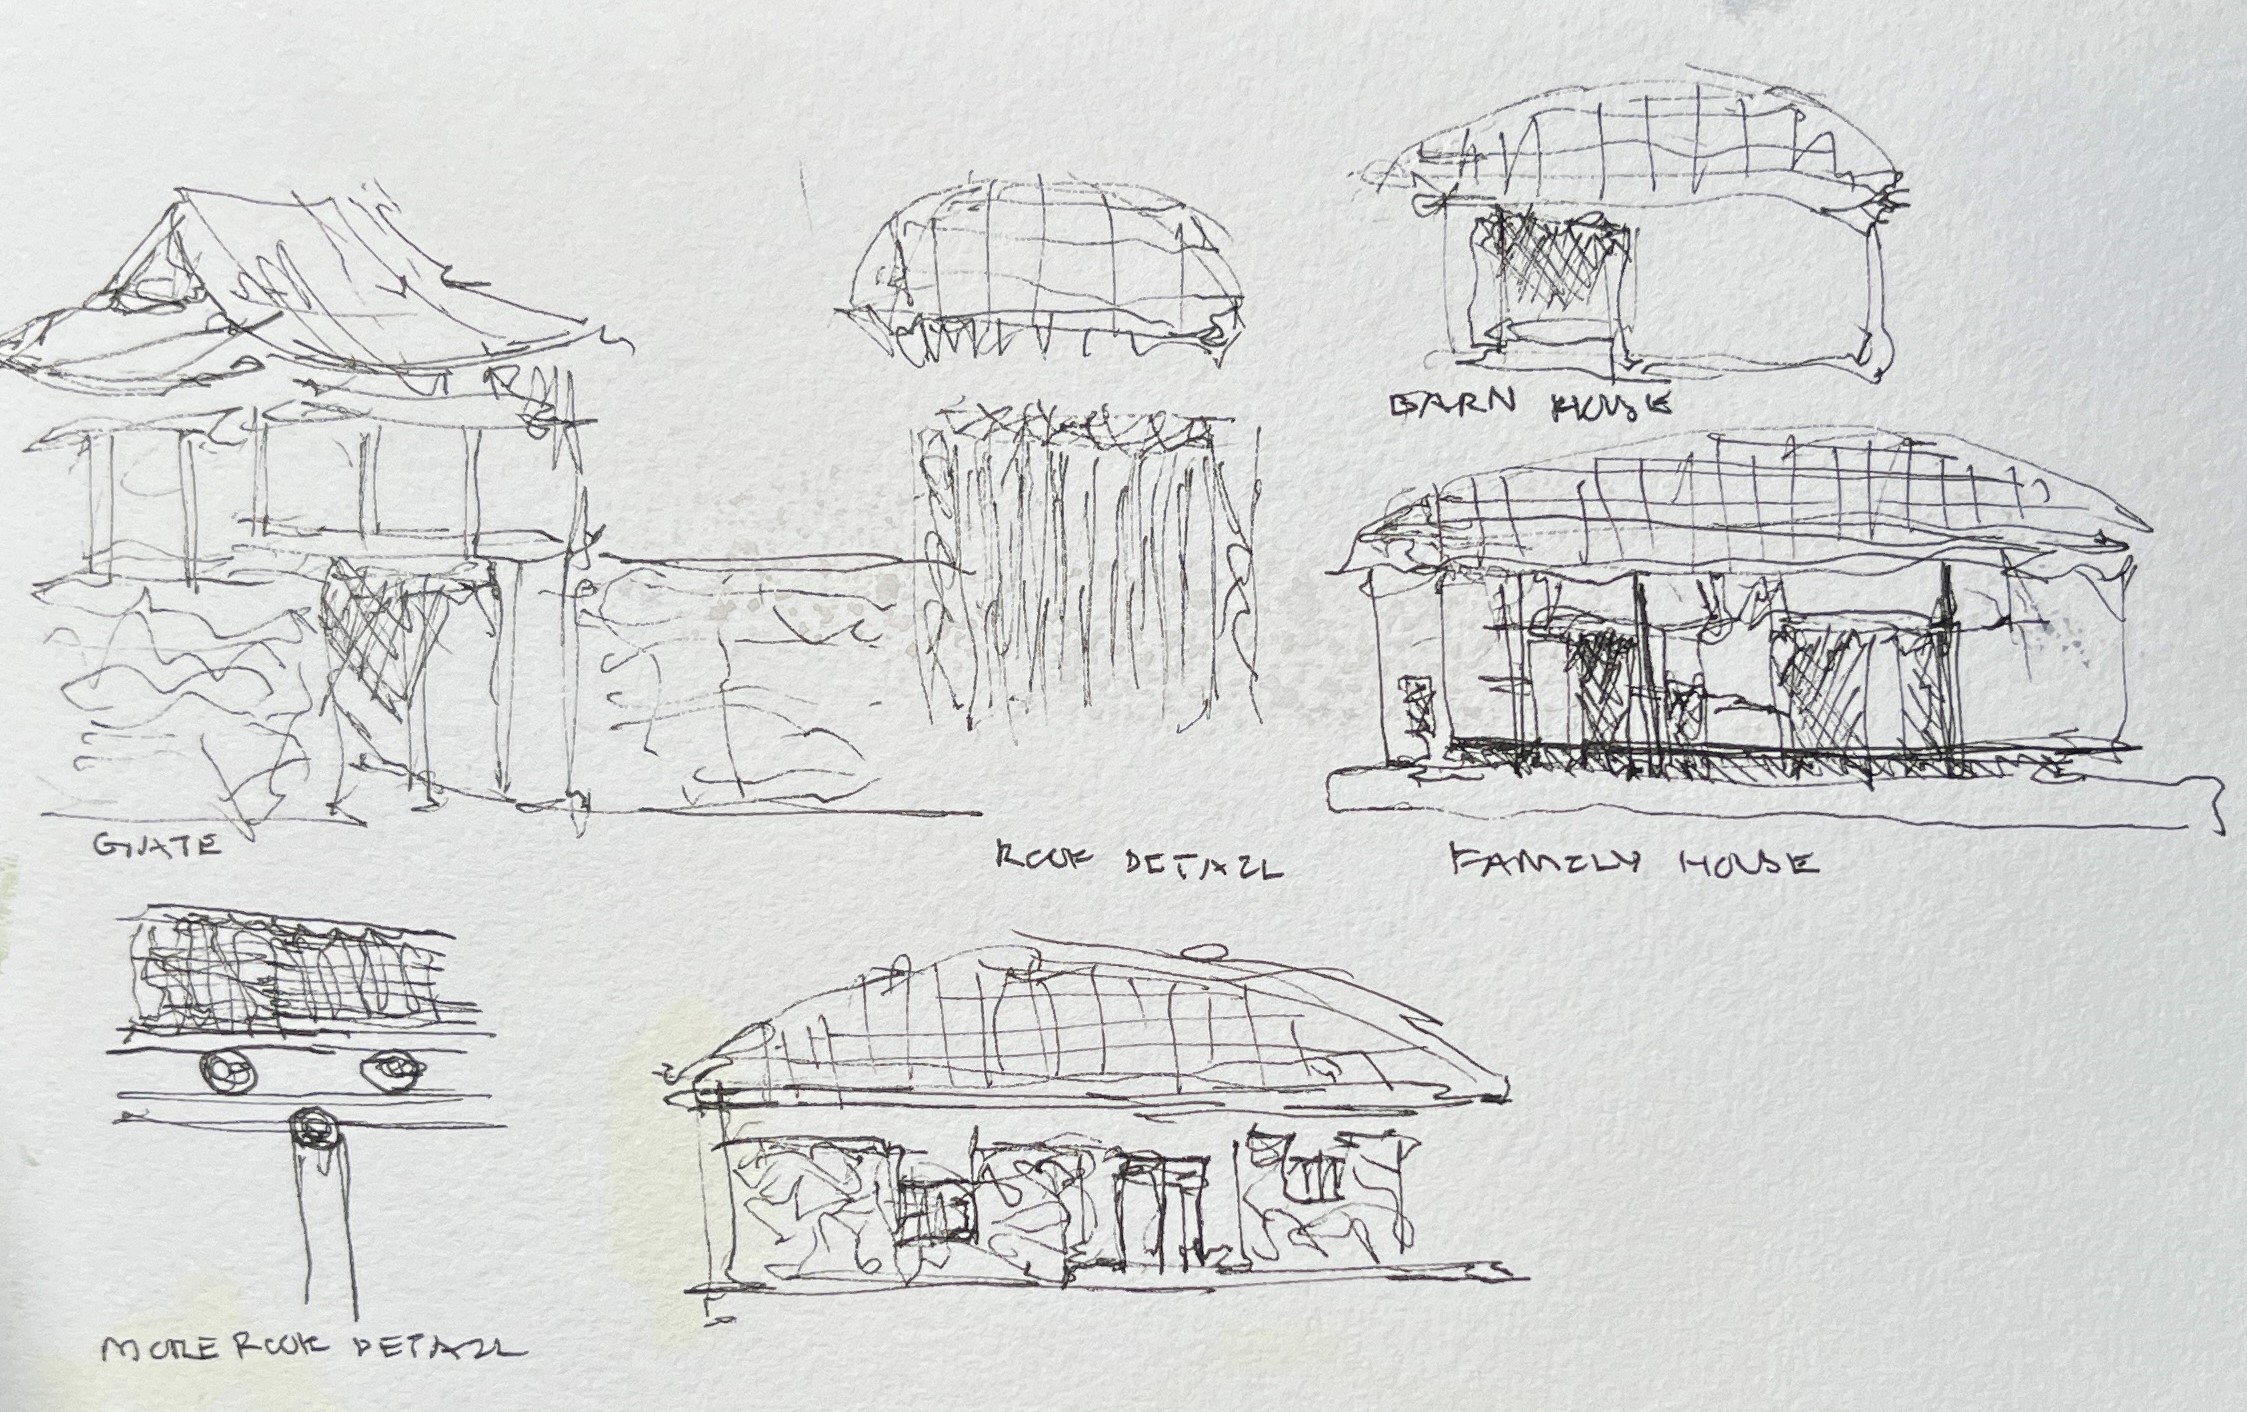 BARN HOUSE
GATE
ROOF DETAIL
FAMILY HOUSE
MORE ROOF DETAIL